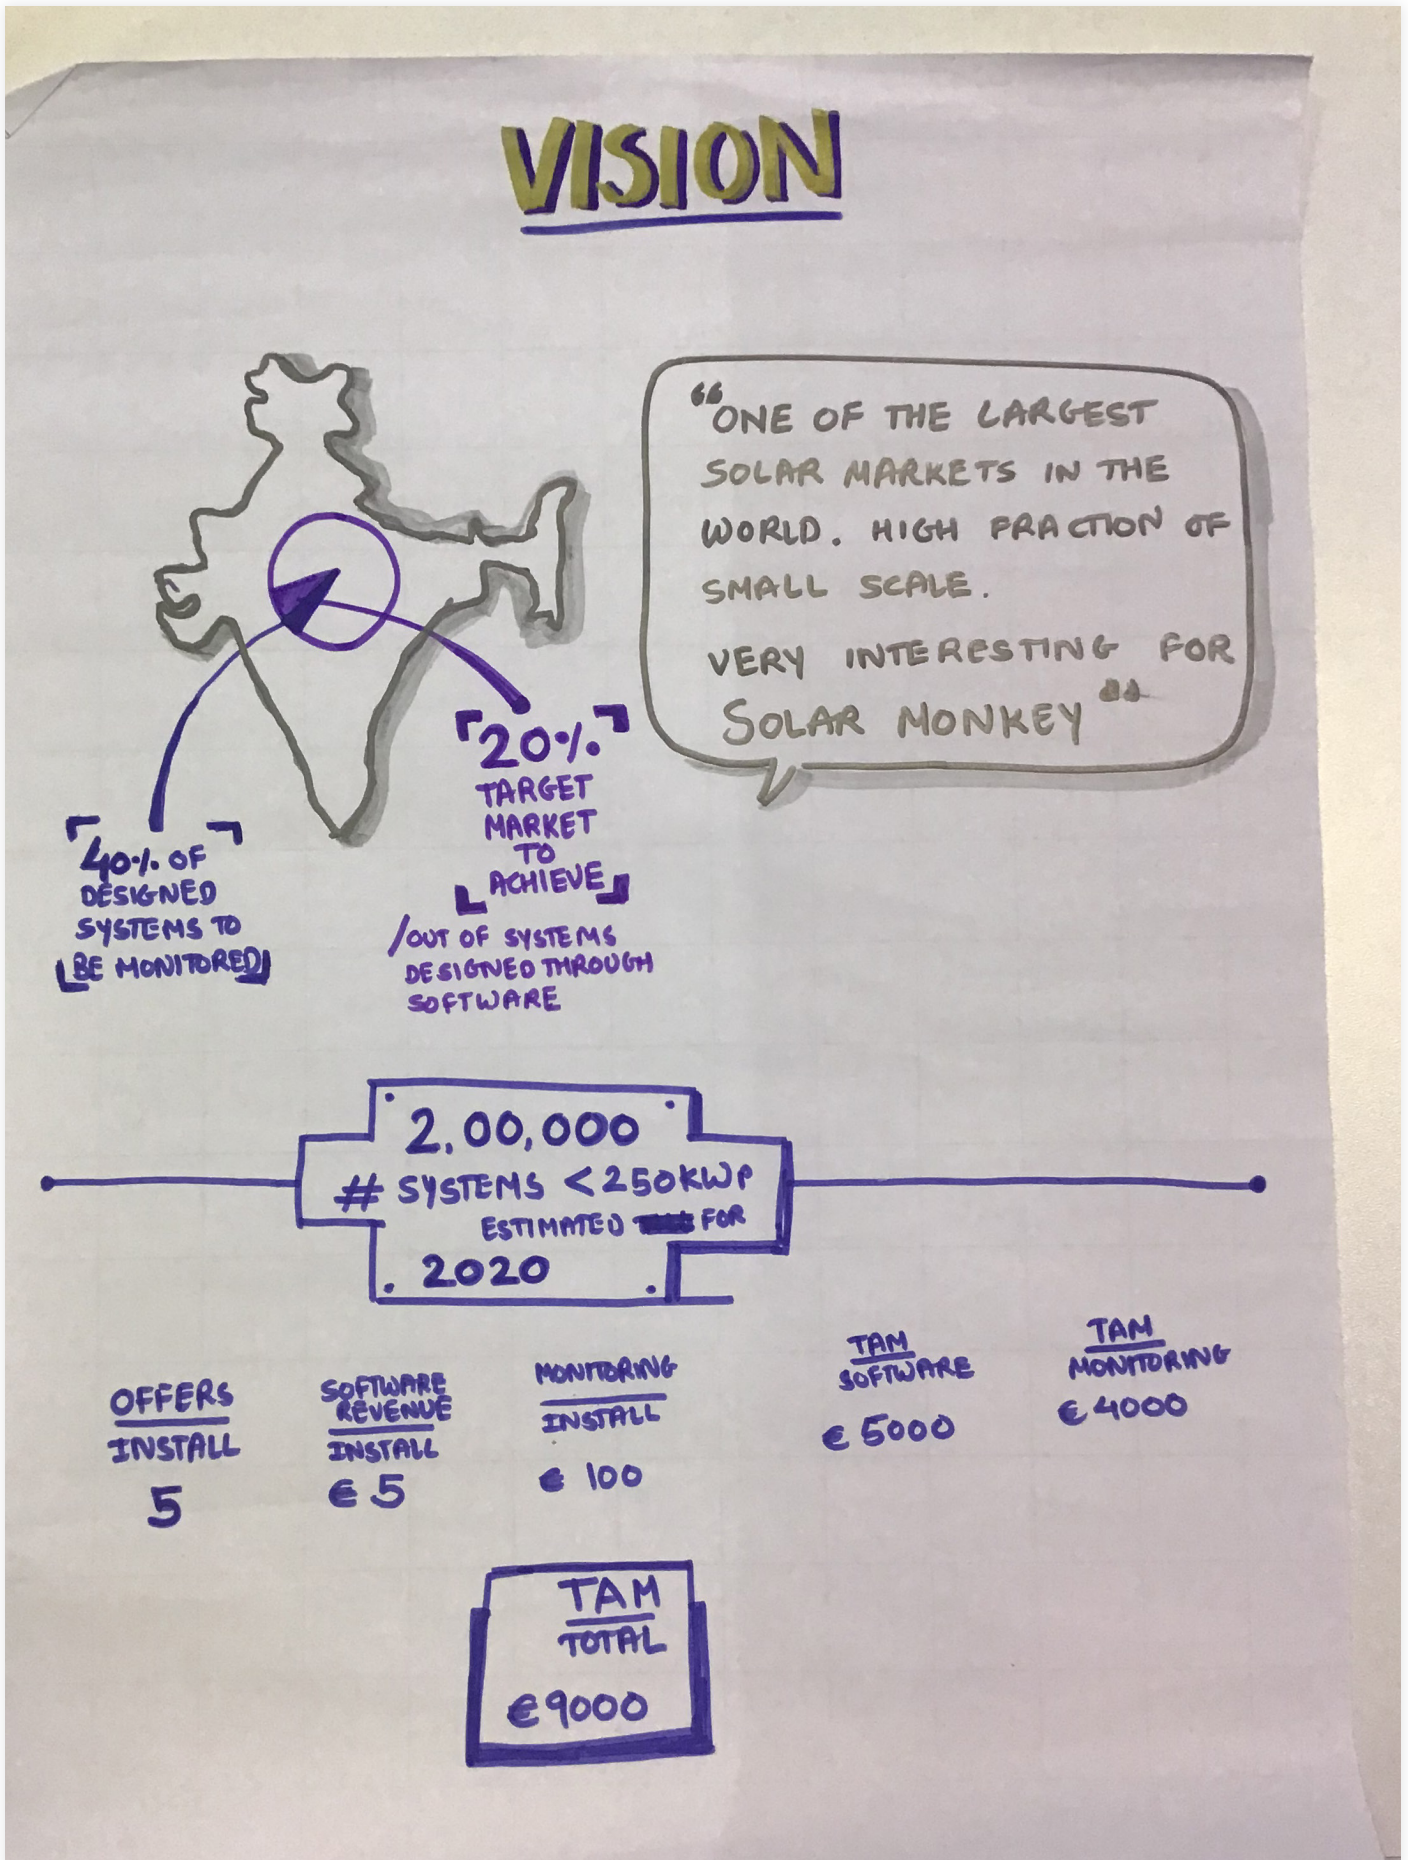 VISION
"ONE OF THE LARGEST
SOLAR MARKETS IN THE
WORLD. HIGH FRACTION OF
SMALL SCALE.
VERY INTERESTING FOR
SOLAR MONKEY"
20%
TARGET
MARKET
TO
ACHIEVE
/OUT OF SYSTEMS
DESIGNED THROUGH
SOFTWARE
40% OF
DESIGNED
SYSTEMS TO
BE MONITORED
2,00,000
# SYSTEMS <250KWP
ESTIMATED FOR
2020
OFFERS
INSTALL
5
SOFTWARE
REVENUE
INSTALL
€ 5
MONITORING
INSTALL
€ 100
TAM
SOFTWARE
€ 5000
TAM
MONITORING
€ 4000
TAM
TOTAL
€9000